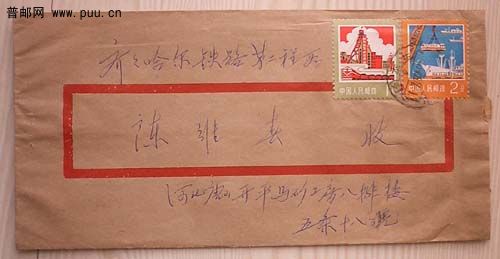 普邮网
www.puu.cn
齐齐哈尔铁路第二程
中国人民邮政
中国人民邮政
2分
陈 春 收
河北唐山开平马矿工房八排楼
五条十八号